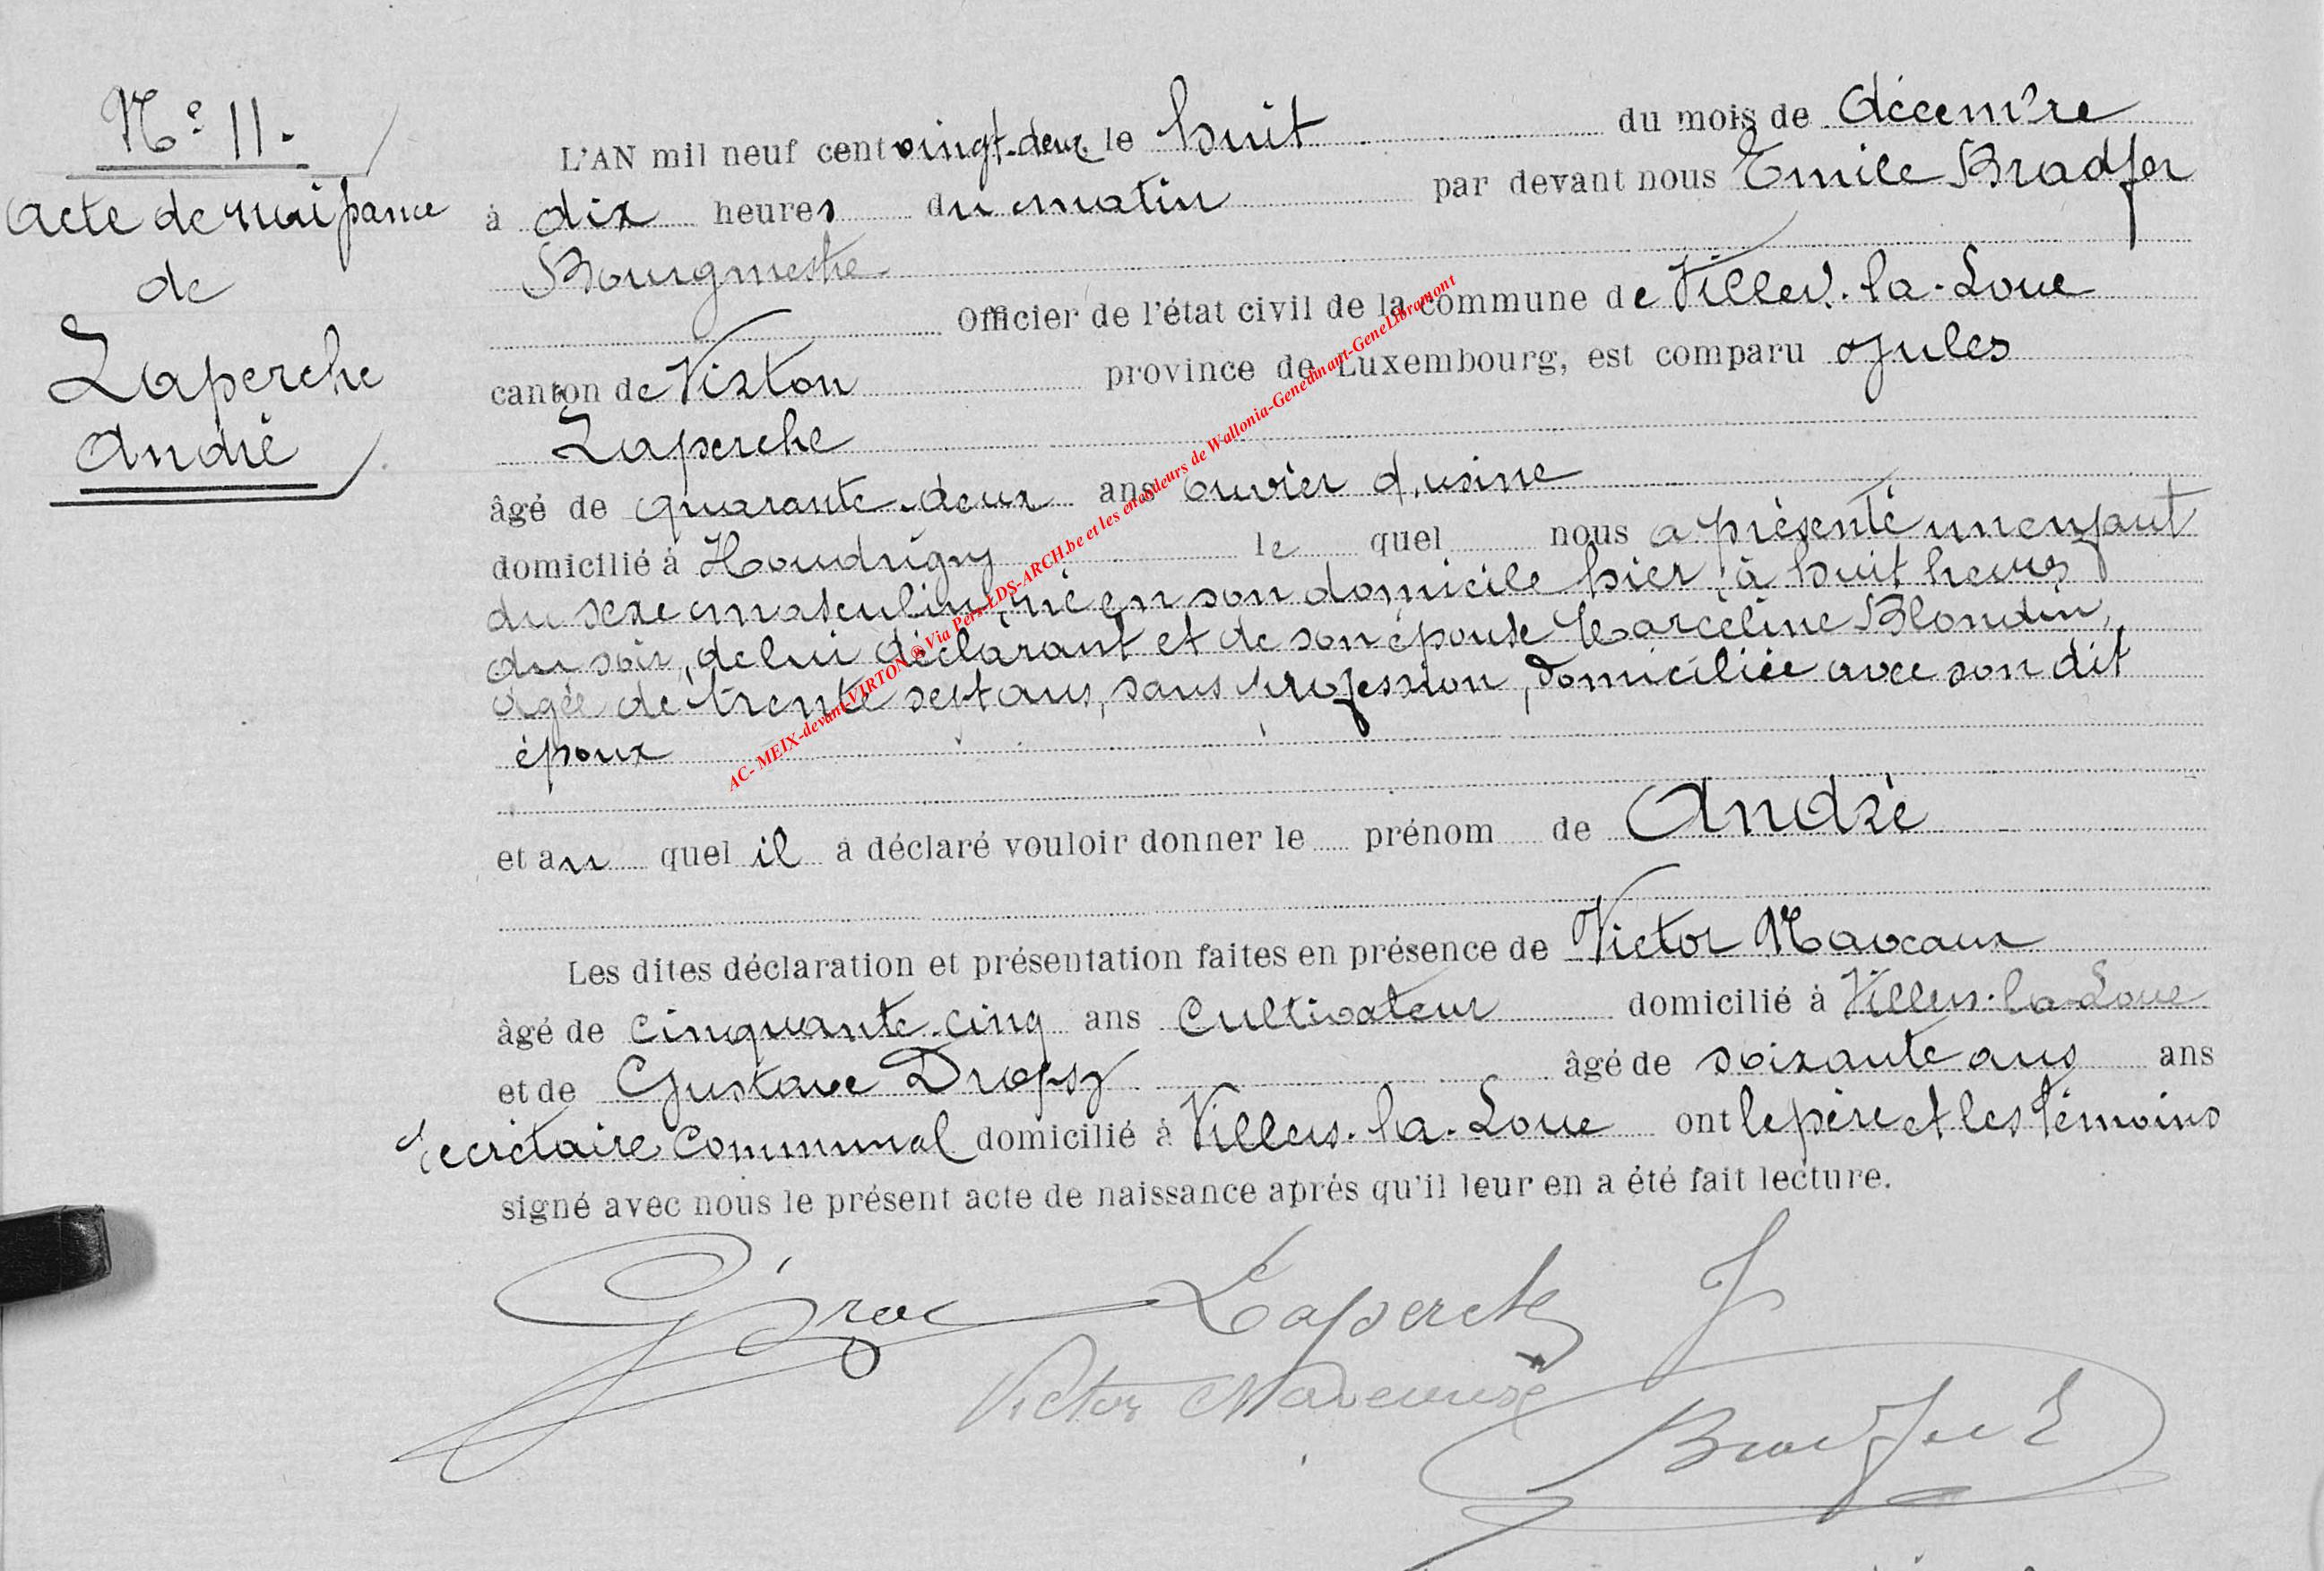 N° 11.
Acte de naissance
de
Laperche
André
L'AN mil neuf cent vingt-deux le huit du mois de décembre
à dix heures du matin par devant nous Emile Bradfer
Bourgmestre
Officier de l'état civil de la commune de Villers-la-Loue
canton de Virton province de Luxembourg, est comparu Jules
Laperche
âgé de quarante-deux ans ouvrier d'usine
domicilié à Houdrigny le quel nous a présenté un enfant
du sexe masculin, né en son domicile hier, à huit heures
du soir, de lui déclarant et de son épouse Marceline Blondin,
âgée de trente sept ans, sans profession, domiciliée avec son dit
époux
et au quel il a déclaré vouloir donner le prénom de André
Les dites déclaration et présentation faites en présence de Victor Naveaux
âgé de cinquante-cinq ans Cultivateur domicilié à Villers-la-Loue
et de Gustave Dropsy âgé de soixante ans ans
Secrétaire Communal domicilié à Villers-la-Loue ont le père et les témoins
signé avec nous le présent acte de naissance aprés qu'il leur en a été fait lecture.
Laperche J
Victor Naveaux
Bradfer E
AC- MEIX-devant-VIRTON ® Via Pers-LDS-ARCH.be et les encodeurs de Wallonia-Genedinant-GeneLibramont